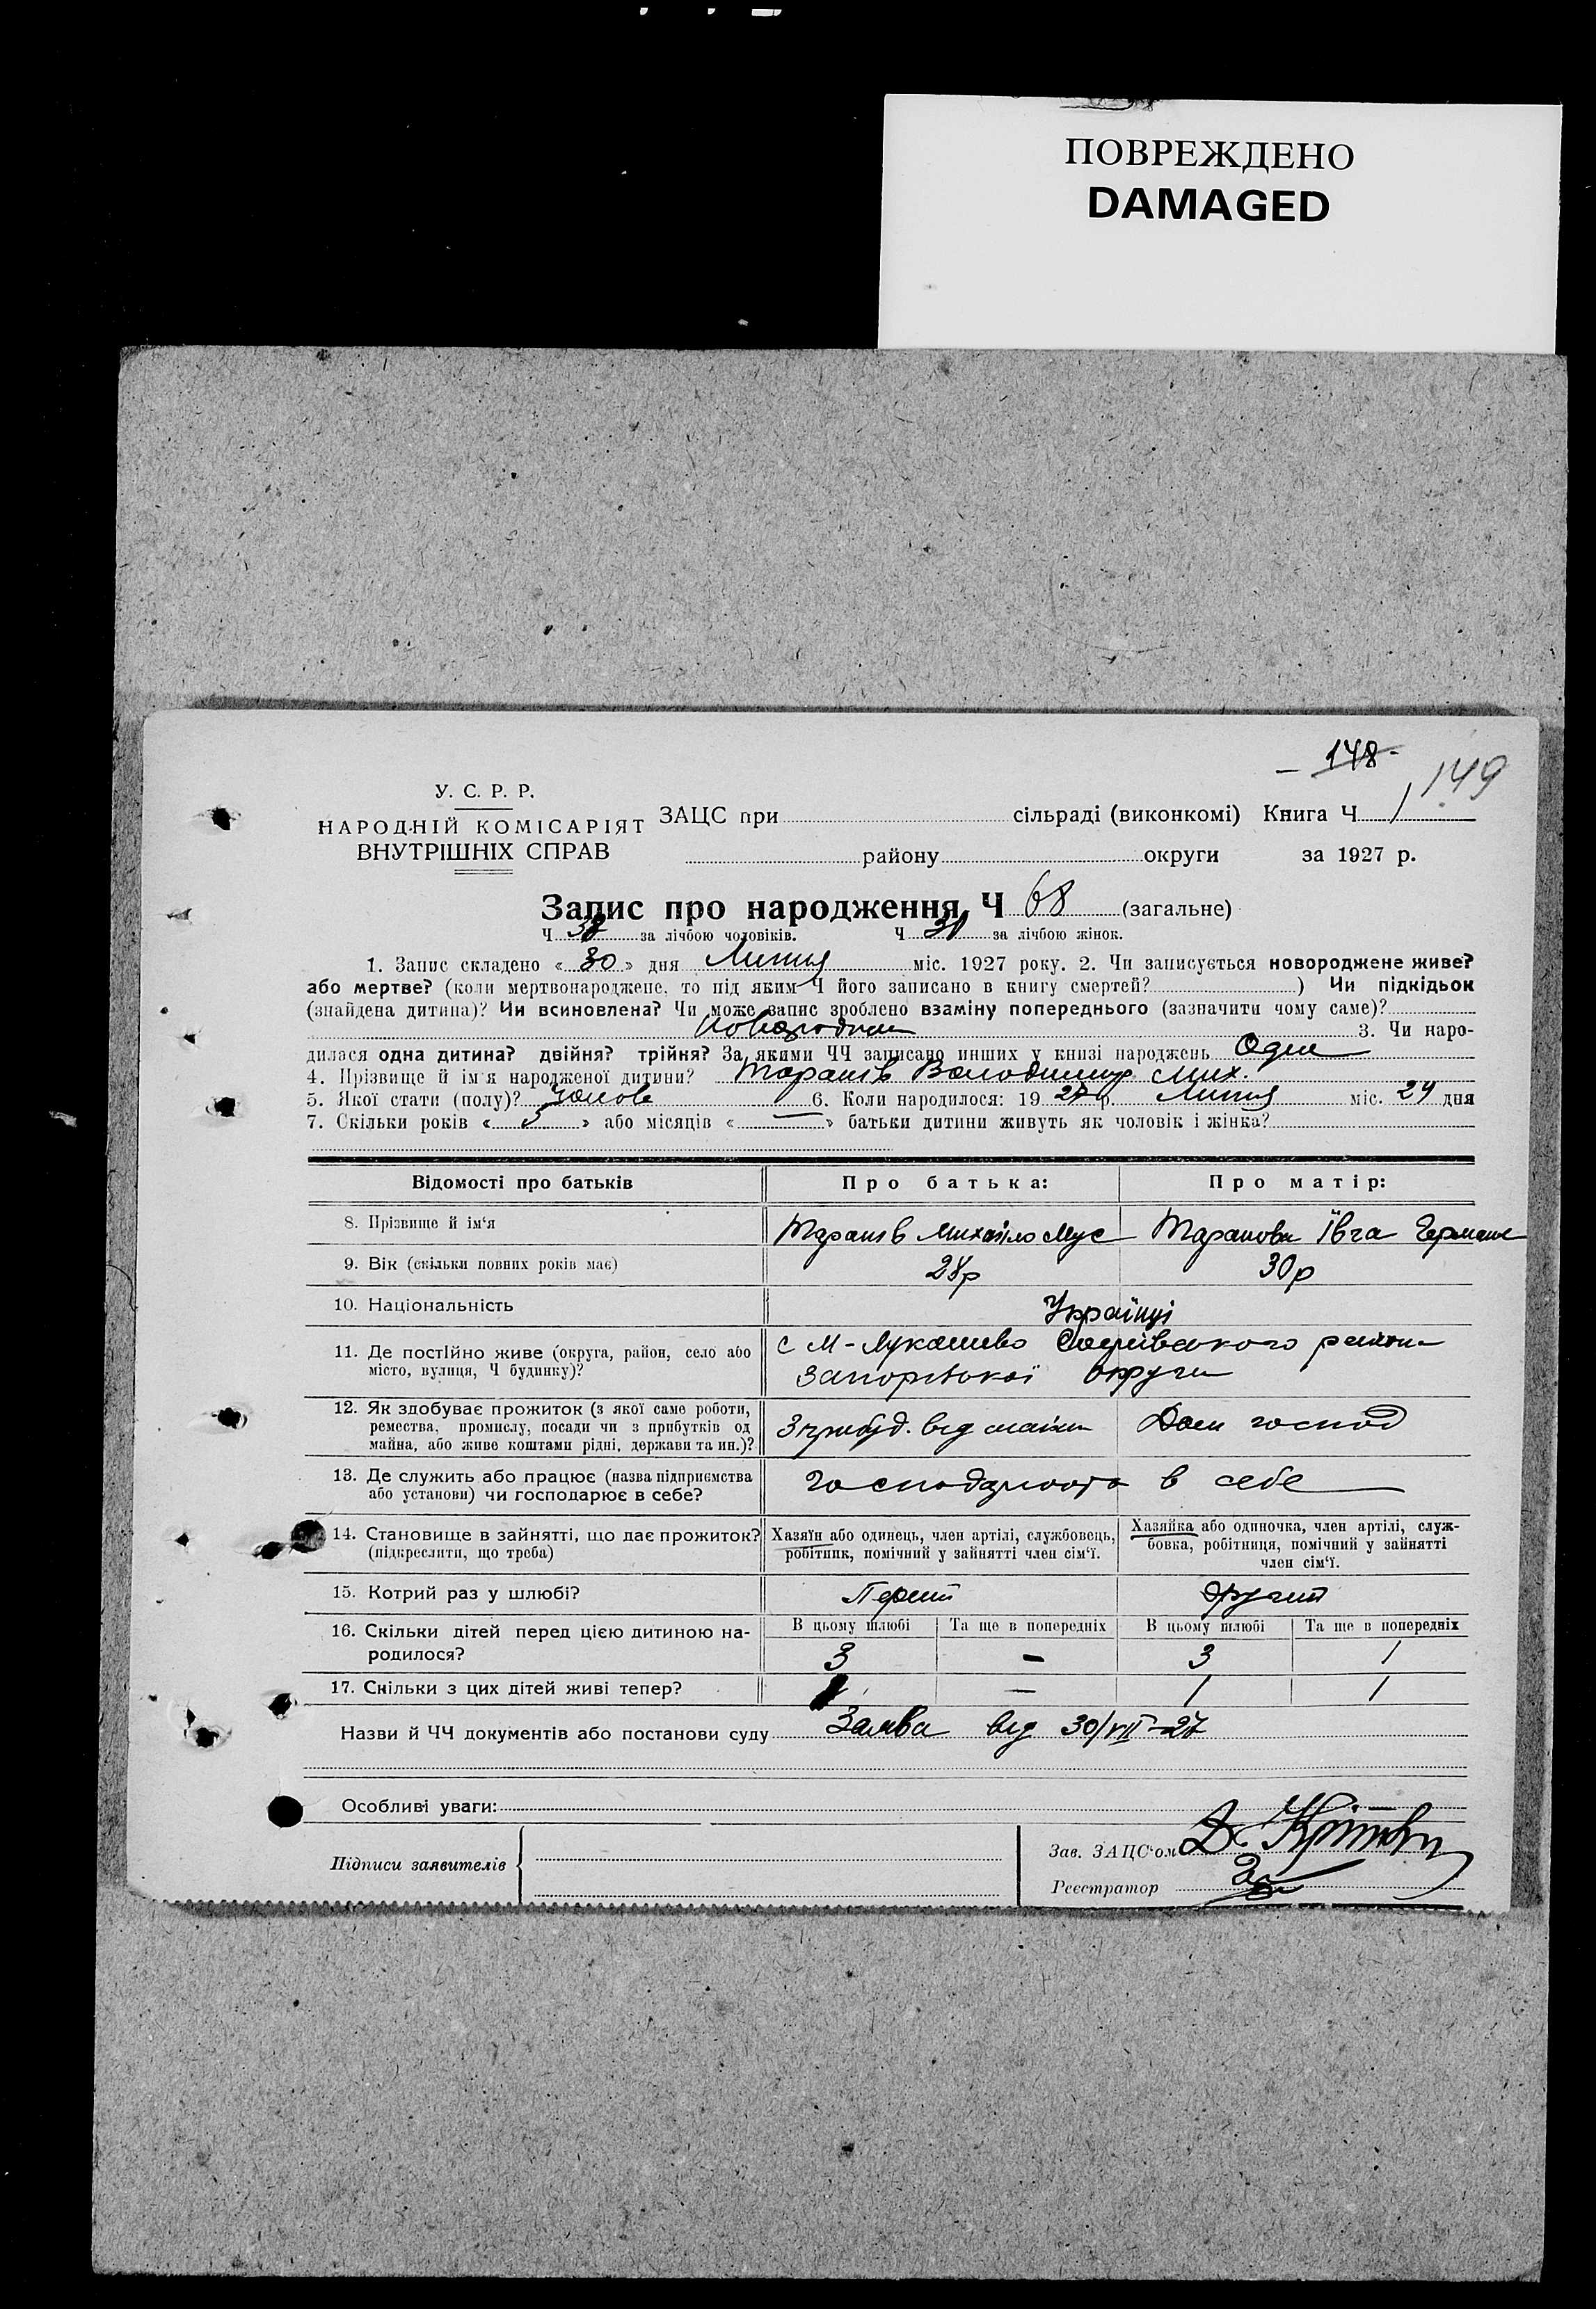 ПОВРЕЖДЕНО
DAMAGED
148
149
У. С. Р. Р.
НАРОДНІЙ КОМІСАРІЯТ
ВНУТРІШНІХ СПРАВ
ЗАЦС при сільраді (виконкомі) Книга Ч 1
району округи за 1927 р.
Запис про народження Ч 68 (загальне)
Ч 38 за лічбою чоловіків. Ч за лічбою жінок.
1. Запис складено «30» дня Липня міс. 1927 року. 2. Чи записується новороджене живе?
або мертве? (коли мертвонароджене, то під яким Ч його записано в книгу смертей? ) Чи підкідьок
(знайдена дитина)? Чи всиновлена? Чи може запис зроблено взаміну попереднього (зазначити чому саме)?
3. Чи наро-
дилася одна дитина? двійня? трійня? За якими ЧЧ записано инших у книзі народжень Одна
4. Прізвище й ім'я народженої дитини? Таранів Володимир Мих.
5. Якої статі (полу)? Чолов 6. Коли народилося: 1927 р. Липня міс. 29 дня
7. Скільки років «5» або місяців «—» батьки дитини живуть як чоловік і жінка?
Відомості про батьків Про батька: Про матір:
8. Прізвище й ім'я Таранів Михайло Мус Таранова Ївга Германе
9. Вік (скільки повних років має) 28р 30р
10. Національність Українці
11. Де постійно живе (округа, район, село або
місто, вулиця, Ч будинку)?
с М-Лукашево района
Запорізької округи
12. Як здобуває прожиток (з якої саме роботи,
ремества, промислу, посади чи з прибутків од
майна, або живе коштами рідні, держави та ин.)?
З прибуд. від майна Дом господ
13. Де служить або працює (назва підприємства
або установи) чи господарює в себе?
в себе
14. Становище в зайнятті, що дає прожиток?
(підкреслити, що треба)
Хазяїн або одинець, член артілі, службовець,
робітник, помічний у зайнятті член сім'ї.
Хазяйка або одиночка, член артілі, служ-
бовка, робітниця, помічний у зайнятті
член сім'ї.
15. Котрий раз у шлюбі? Перший Другий
16. Скільки дітей перед цією дитиною на-
родилося?
В цьому шлюбі Та ще в попередніх В цьому шлюбі Та ще в попередніх
3 – 3 1
17. Скільки з цих дітей живі тепер? 1 — 1 1
Назви й ЧЧ документів або постанови суду Заява від 30/VII-27
Особливі уваги:
Підписи заявителів
Зав. ЗАЦС'ом
Реєстратор